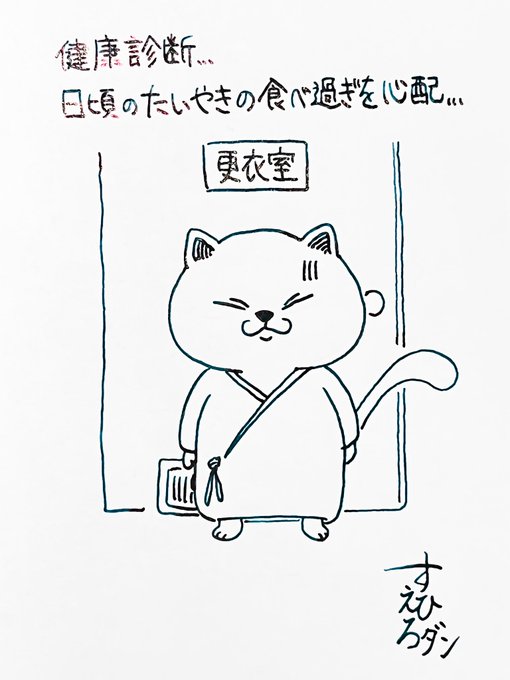 健康診断…
日頃のたいやきの食べ過ぎを心配…
更衣室
すえひろダン